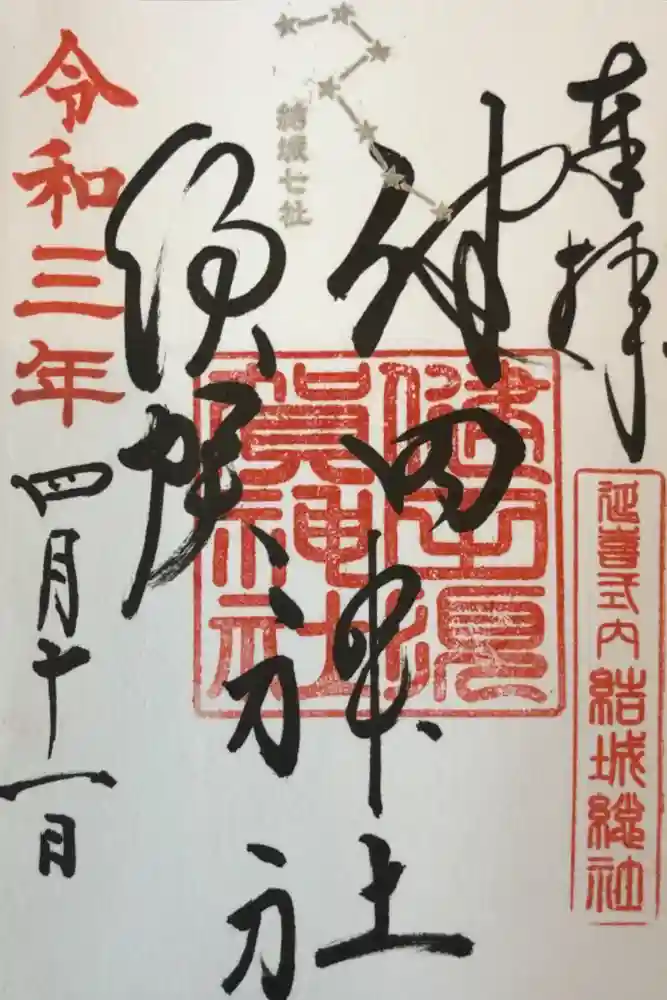 奉拝
延喜式内 結城総社
健田神社
健田須
賀神社
結城七社
須賀
令和三年
四月十一日